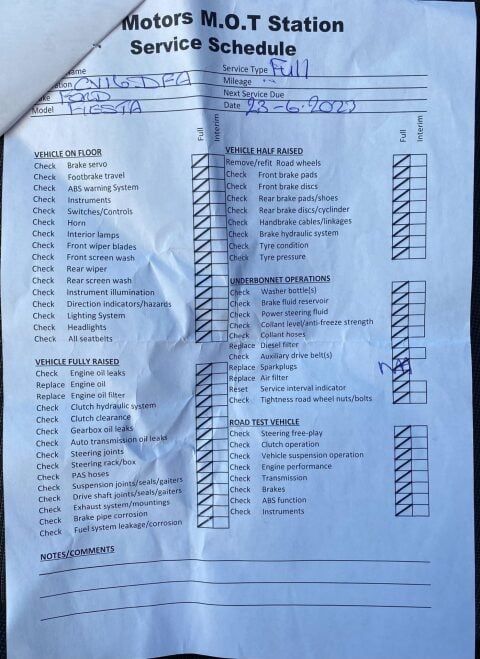 Motors M.O.T Station
Service Schedule
Name
Service Type Full
CV16 DFA
Mileage
FORD
Next Service Due
Model FIESTA
Date 23-6-2023
Full Interim
Full Interim
VEHICLE ON FLOOR
Check Brake servo
Check Footbrake travel
Check ABS warning System
Check Instruments
Check Switches/Controls
Check Horn
Check Interior lamps
Check Front wiper blades
Check Front screen wash
Check Rear wiper
Check Rear screen wash
Check Instrument illumination
Check Direction indicators/hazards
Check Lighting System
Check Headlights
Check All seatbelts
VEHICLE FULLY RAISED
Check Engine oil leaks
Replace Engine oil
Replace Engine oil filter
Check Clutch hydraulic system
Check Clutch clearance
Check Gearbox oil leaks
Check Auto transmission oil leaks
Check Steering joints
Check Steering rack/box
Check PAS hoses
Check Suspension joints/seals/gaiters
Check Drive shaft joints/seals/gaiters
Check Exhaust system/mountings
Check Brake pipe corrosion
Check Fuel system leakage/corrosion
VEHICLE HALF RAISED
Remove/refit Road wheels
Check Front brake pads
Check Front brake discs
Check Rear brake pads/shoes
Check Rear brake discs/cylinder
Check Handbrake cables/linkages
Check Brake hydraulic system
Check Tyre condition
Check Tyre pressure
UNDERBONNET OPERATIONS
Check Washer bottle(s)
Check Brake fluid reservoir
Check Power steering fluid
Check Collant level/anti-freeze strength
Check Collant hoses
Replace Diesel filter
Check Auxiliary drive belt(s)
Replace Sparkplugs
Replace Air filter
Reset Service interval indicator
Check Tightness road wheel nuts/bolts
ROAD TEST VEHICLE
Check Steering free-play
Check Clutch operation
Check Vehicle suspension operation
Check Engine performance
Check Transmission
Check Brakes
Check ABS function
Check Instruments
NOTES/COMMENTS